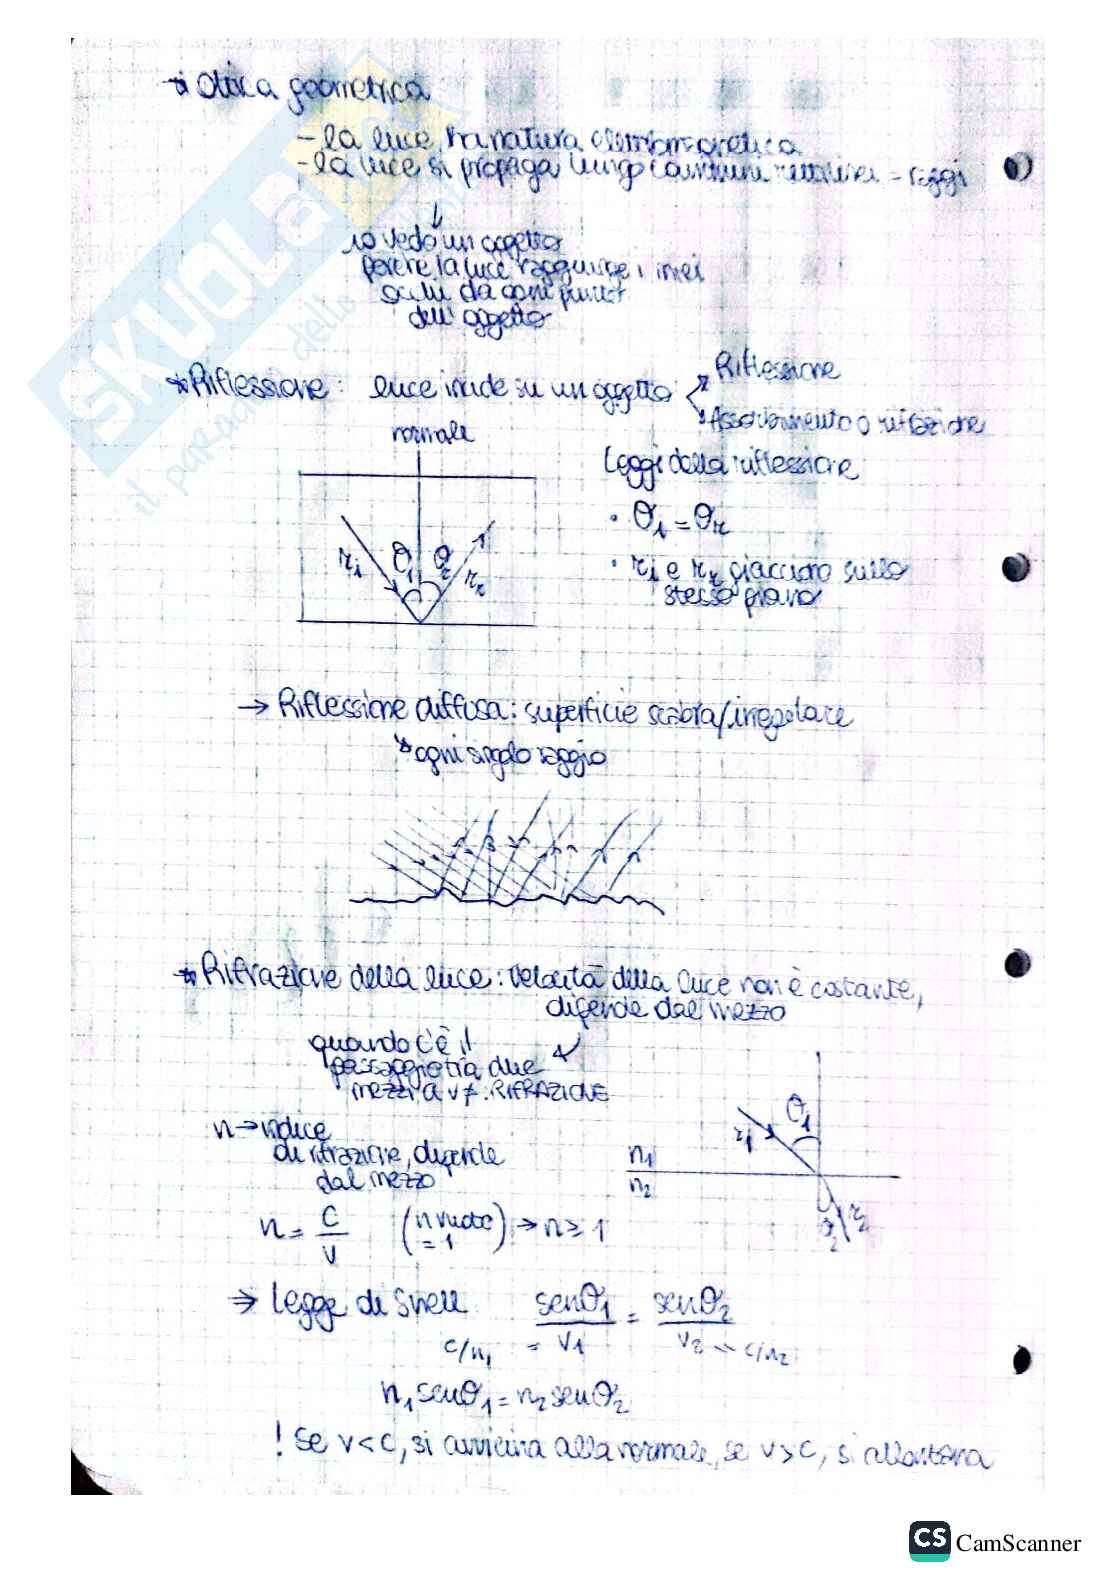 Ottica geometrica
- la luce ha natura elettromagnetica
- la luce si propaga lungo cammini rettilinei = raggi
io vedo un oggetto
perché la luce raggiunge i miei
occhi da ogni punto
dell'oggetto
* Riflessione: luce incide su un oggetto
Riflessione
Assorbimento o rifrazione
normale
Leggi della riflessione
• θi = θr
• ri e rr giacciono sullo
stesso piano
ri θi θr rr
→ Riflessione diffusa: superficie scabra/irregolare
ogni singolo raggio
* Rifrazione della luce: velocità della luce non è costante,
dipende dal mezzo
quando c'è il
passaggio tra due
mezzi a v ≠: RIFRAZIONE
n → indice
di rifrazione, dipende
dal mezzo
n = c/v (n vuoto = 1) → n ≥ 1
r1 θ1
n1
n2
θ2 r2
⇒ Legge di Snell senθ1/v1 = senθ2/v2
c/n1 = v1 v2 = c/n2
n1 senθ1 = n2 senθ2
! Se v < c, si avvicina alla normale, se v > c, si allontana
SKUOLA
il paradiso dello
CS CamScanner